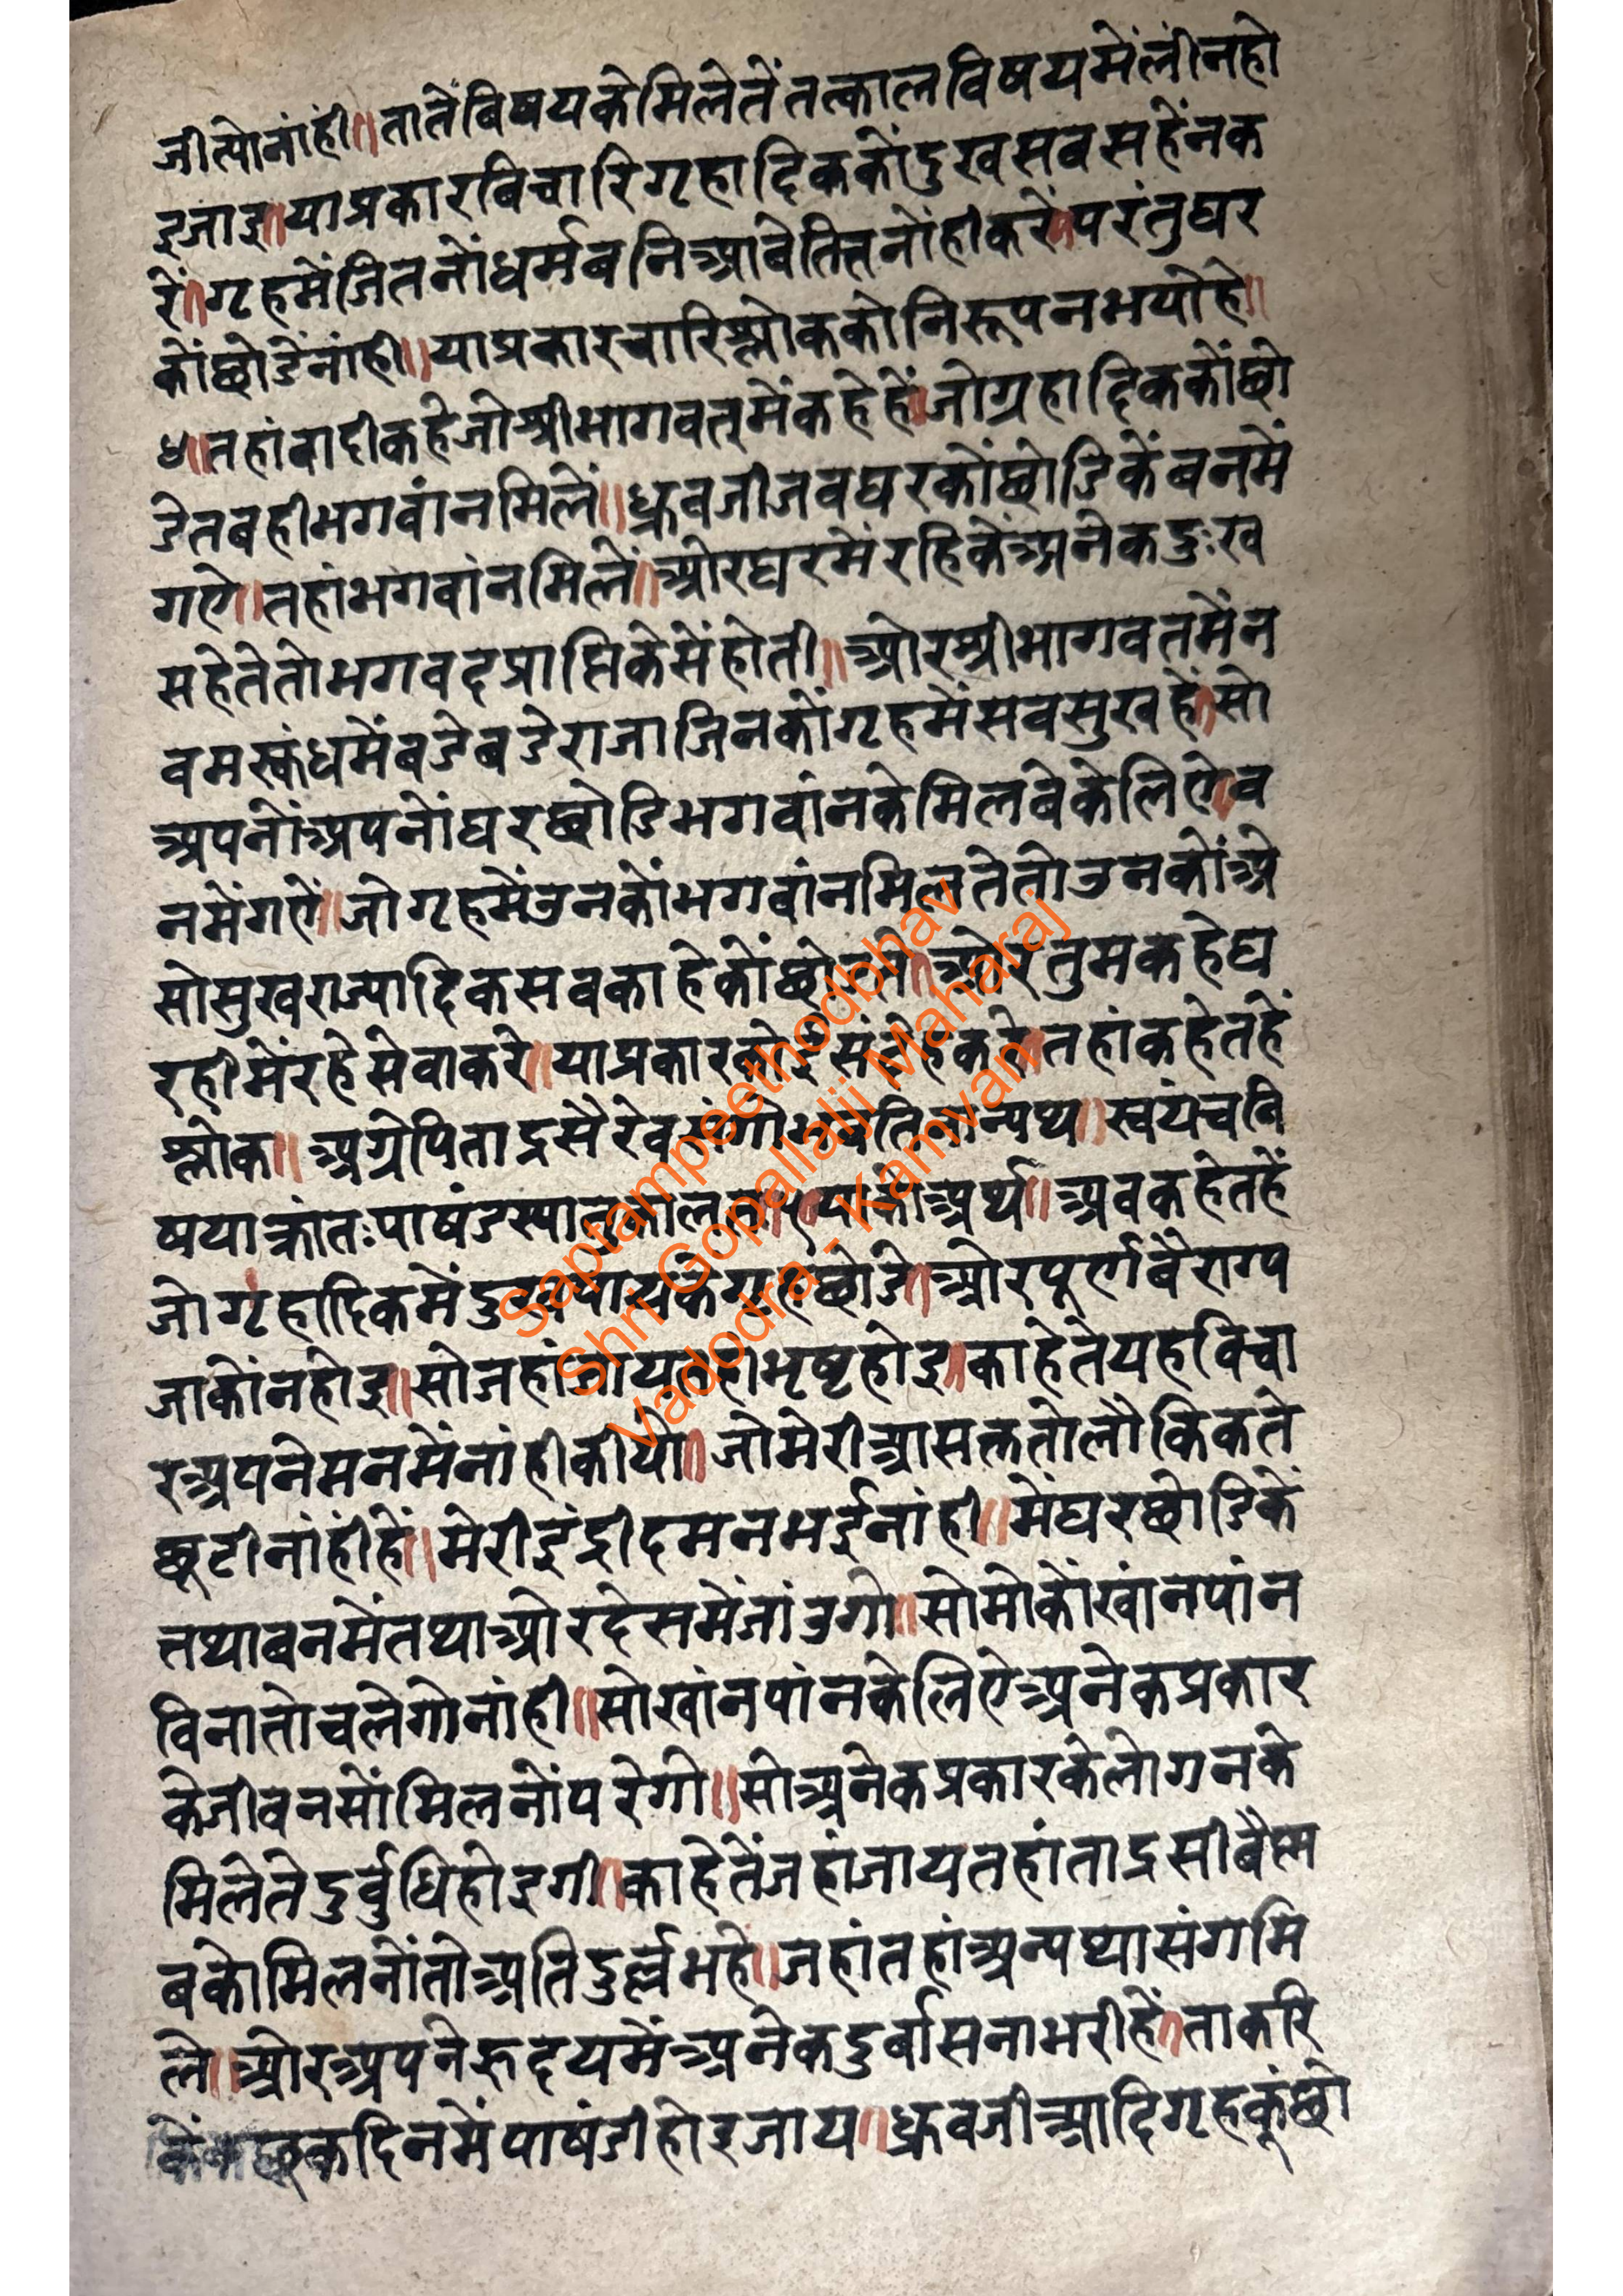 जीत्योनांही॥तातेंबिषयकेमिलेतेंतत्कालविषयमेंलीनहो
इजाइ॥याप्रकारबिचारिगृहादिककोंदुखसबसहेंनक
रें॥गृहमेंजितनोंधर्मबनिआबेतितनोंहीकरें॥परंतुघर
कोंछोडेंनांही॥याप्रकारचारिश्लोककोनिरूपनभयोहे॥
४॥तहांबादीकहेजोश्रीभागवतमेंकहेहें॥जोग्रहादिककोंछो
डेतबहीभगवांनमिलें॥ध्रुवजीजबघरकोंछोडिकेंबनमें
गऐ॥तहांभगवांनमिलें॥ओरघरमेंरहिकेंअनेकदुःख
सहेतेतोभगवदप्राप्तिकेसेंहोती॥ओरश्रीभागवतमेंन
वमस्कंधमेंबडेबडेराजाजिनकोंगृहमेंसबसुखहें॥सो
अपनोंअपनोंघरछोडिभगवांनकेमिलबेकेलिऐ॥ब
नमेंगऐं॥जोगृहमेंउनकोंभगवांनमिलतेतोउनकोंअे
सोसुखराज्यादिकसबकाहेकोंछोडते॥ओरतुमकहेघ
रहीमेंरहेसेवाकरे॥याप्रकारकोईसंदेहकरे॥तहांकहेतहें
श्लोक॥अग्रेपिताद्रसैरेवसंगोभवतिनान्यथ॥स्वयंचवि
षयाक्रांतःपाषंडस्यातुकालत॥५॥याकोअर्थ॥अबकहेतहें
जोगृहादिकमेंदुखपायकेंगृहछोडे॥ओरपूर्णबैराग्य
जाकोंनहोइ॥सोजहांजायतहांभृष्टहोइ॥काहेतेयहबिचा
रअपनेमनमेंनांहीकीयो॥जोमेरीआसक्ततोलौकिकते
छूटीनांहींहें॥मेरीइंद्रीदमनभईनांही॥मेंघरछोडिकें
तथाबनमेंतथाओरदेसमेंजांउगो॥सोमोकोंखांनपांन
विनातोचलेगोनांही॥सोखांनपांनकेलिऐअनेकप्रकार
केजीवनसोंमिलनोंपरेगो॥सोअनेकप्रकारकेलोगनके
मिलेतेदुर्बुधिहोइगी॥काहेतेंजहांजायतहांताद्रसीबैस्म
बकोमिलनोंतोअतिदुर्ल्लभहे॥जहांतहांअन्यथासंगमि
ले॥ओरअपनेह्रदयमेंअनेकदुर्बासनाभरीहें॥ताकरि
कदिनमेंपाषंडीहोइजाय॥ध्रुवजीआदिगृहकूंछो
Saptampeethodbhav
Shri Gopallalji Maharaj
Vadodra - Kamvan